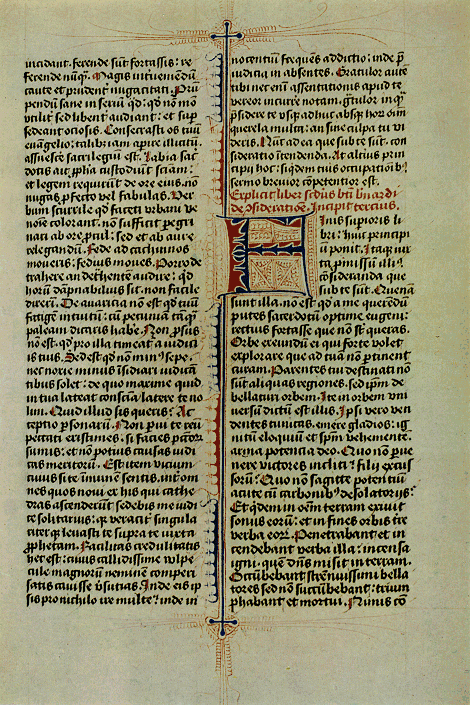 incidant. ferende sũt fortassis: re
ferende nũq̃. Magis intueniendũ
caute et prudent̾ nugacitati. Prũ
pendũ sane in seriũ qd: qd nõ mõ
utilit̾ sed libent̾ audiant: et sup̾
sedeant ociosis. Consecrasti os tuũ
euãgelio: talibꝫ iam apire illicitũ.
assuesce sacrilegiũ est. Labia sac̾
dotis ait ꝓphã custodiunt sciam:
et legem requirũt de ore eius. nõ
nugas ꝓfecto vel fabulas. Ver
bum scurrile qd faceti urbani ve
noĩe colorãt. nõ sufficit p̲egri
nari ab ore ꝓcul: sed et ab aure
relegandum. Fede ad cachinnos
moueris: fedius moues. Porro de
trahere an det̾hentẽ audire: qd
horum dãpnabilius sit. non facile
dixerĩ. De auaricia nõ est qd tuũ
fatigẽ intuitũ: cũ pecuniã tãq̃
paleam dicaris habe. Non ꝓsus
nõ est. qd ꝓ illa timeat̾ a iudici
is tuis. Sed est qd nõ minꝰ sepe.
nec noxie minus ĩsidiari iudicã
tibus solet: de quo maxime quid
in tua lateat conscĩa. latere te no
lim. Quid illud sis queris? Ac
ceptio ꝑsonarũ. Non ꝑui te reũ
peccati existimes. si facies p̃ctorũ
sumis: et nõ potius causas iudi
cas meritorũ. Est item viciũ
cuius si te ĩmunẽ sentis. int̾ om
nes quos noui ex hiis qui cathe
dras ascenderũt sedebis me iudi
ce solitarius: qꝛ veracit̾ singula
rit̾ qꝫ leuasti te supra te iuxta
ꝓphetam. Facilitas credulitatis
hec est: cuius callidissime vulpe
cule magnorũ neminẽ comperi
satis cauisse v̾sutias. Inde eis ip
sis pro nichilo ire multe: inde in
nocentiũ freques addictio: inde p̃
iudicia in absentes. Gratulor autẽ
tibi nec enĩ assentationis apud te
vereor incurre notam. g̾tulor inqͣ
p̃sidere te vsqꝫ adhuc absqꝫ hoꝝ om̃
querela multa: an sine culpa tu vi
deris. Nũc ad ea que sub te sũt. con
sideratio ĩtendenda. At altius prin
cipiũ hoc: siqdem tuis occupatiõibꝫ
sermo breuior cõpetentior est.
Explicit liber scdus bt̃i bñardi
de ꝯsideratiõe. Incipit tercius.
Finis supioris li
bri: huiꝰ principi
ũ ponit. Itaqꝫ iux
ta ꝓmissũ illiꝰ.
cõsideranda que
sub te sũt. Quenã
sunt illa. nõ est. qd a me querẽdũ
putes sacerdotũ optime eugeni:
rectius fortasse que nõ st̃ queras.
Orbe exeundũ ei qui forte volet
explorare que ad tuã nõ ꝑtinent
curam. Parentes tui destinati nõ
sũt aliquas regiones. sed ipm̃ de
bellaturi orbem. Ite in orbem vni
uersũ dictũ est illis. Ipsi vero ven
dentes tunicas. emere gladios: ig
nitũ eloquiũ et spm̃ vehemente.
arma potencia deo. Quo nõ ꝑue
nere victores incliti? filij excus
sorũ: Quo nõ sagitte potentiũ
acute cũ carbonibꝫ desolatoriis:
Et qdem in oem̃ terram exiuit
sonus eorũ: et in fines orbis t̾re
verba eorꝝ. Penetrabant et in
tendebant verba illa: incensa
igni. que dñs misit in terram.
Occũbebant strẽnuissimi bella
tores sed nõ succũbebant: trium
phabant et mortui. Nimis cõ